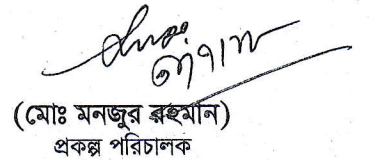 (মোঃ মনজুর রহমান)
প্রকল্প পরিচালক